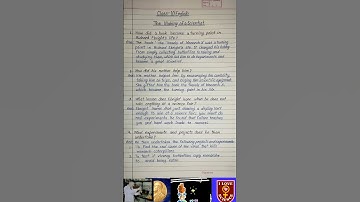 Class-10 English
The Making of a Scientist
1. How did a book become a turning point in
Richard Ebright's life?
Ans: The book 'The Travels of Monarch X' was a turning
point in Richard Ebright's life. It changed his hobby
from simply collecting butterflies to
studying them, which led him to do experiments and
become a great scientist.
2. How did his mother help him?
Ans: His mother helped him by encouraging his curiosity,
taking him on trips, and buying him scientific equipment.
She gifted him the book The Travels of Monarch X,
which became the turning point in his life.
3. What lesson does Ebright learn when he does not
win anything at a science fair?
Ans: Ebright learnt that just showing a display isn't
enough to win at a science fair; you must do
real experiments. He found that winners
put hard work to succeed.
4. What experiments and projects does he then
undertake?
Ans: He then undertook the following projects and experiments.
To find the cause of the that kills
monarch caterpillars.
To test if viceroy butterflies copy monarchs
to avoid being eaten.
I LOVE